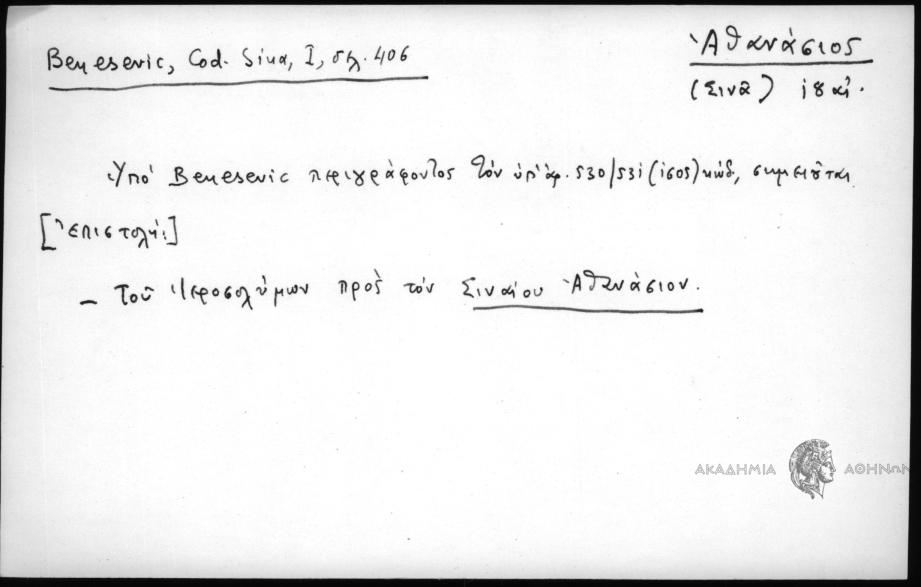 Benesevic, Cod. Sina, I, σελ. 406
Ἀθανάσιος
(Σινᾶ) ιη αἰ.
Ὑπό Benesevic περιγράφοντος τόν ὑπ' ἀρ. 530/531 (1505) κώδ, σημειοῦται
[ἐπιστολή:]
– Τοῦ Ἱεροσολύμων πρός τόν Σιναίου Ἀθανάσιον.
ΑΚΑΔΗΜΙΑ ΑΘΗΝΩΝ